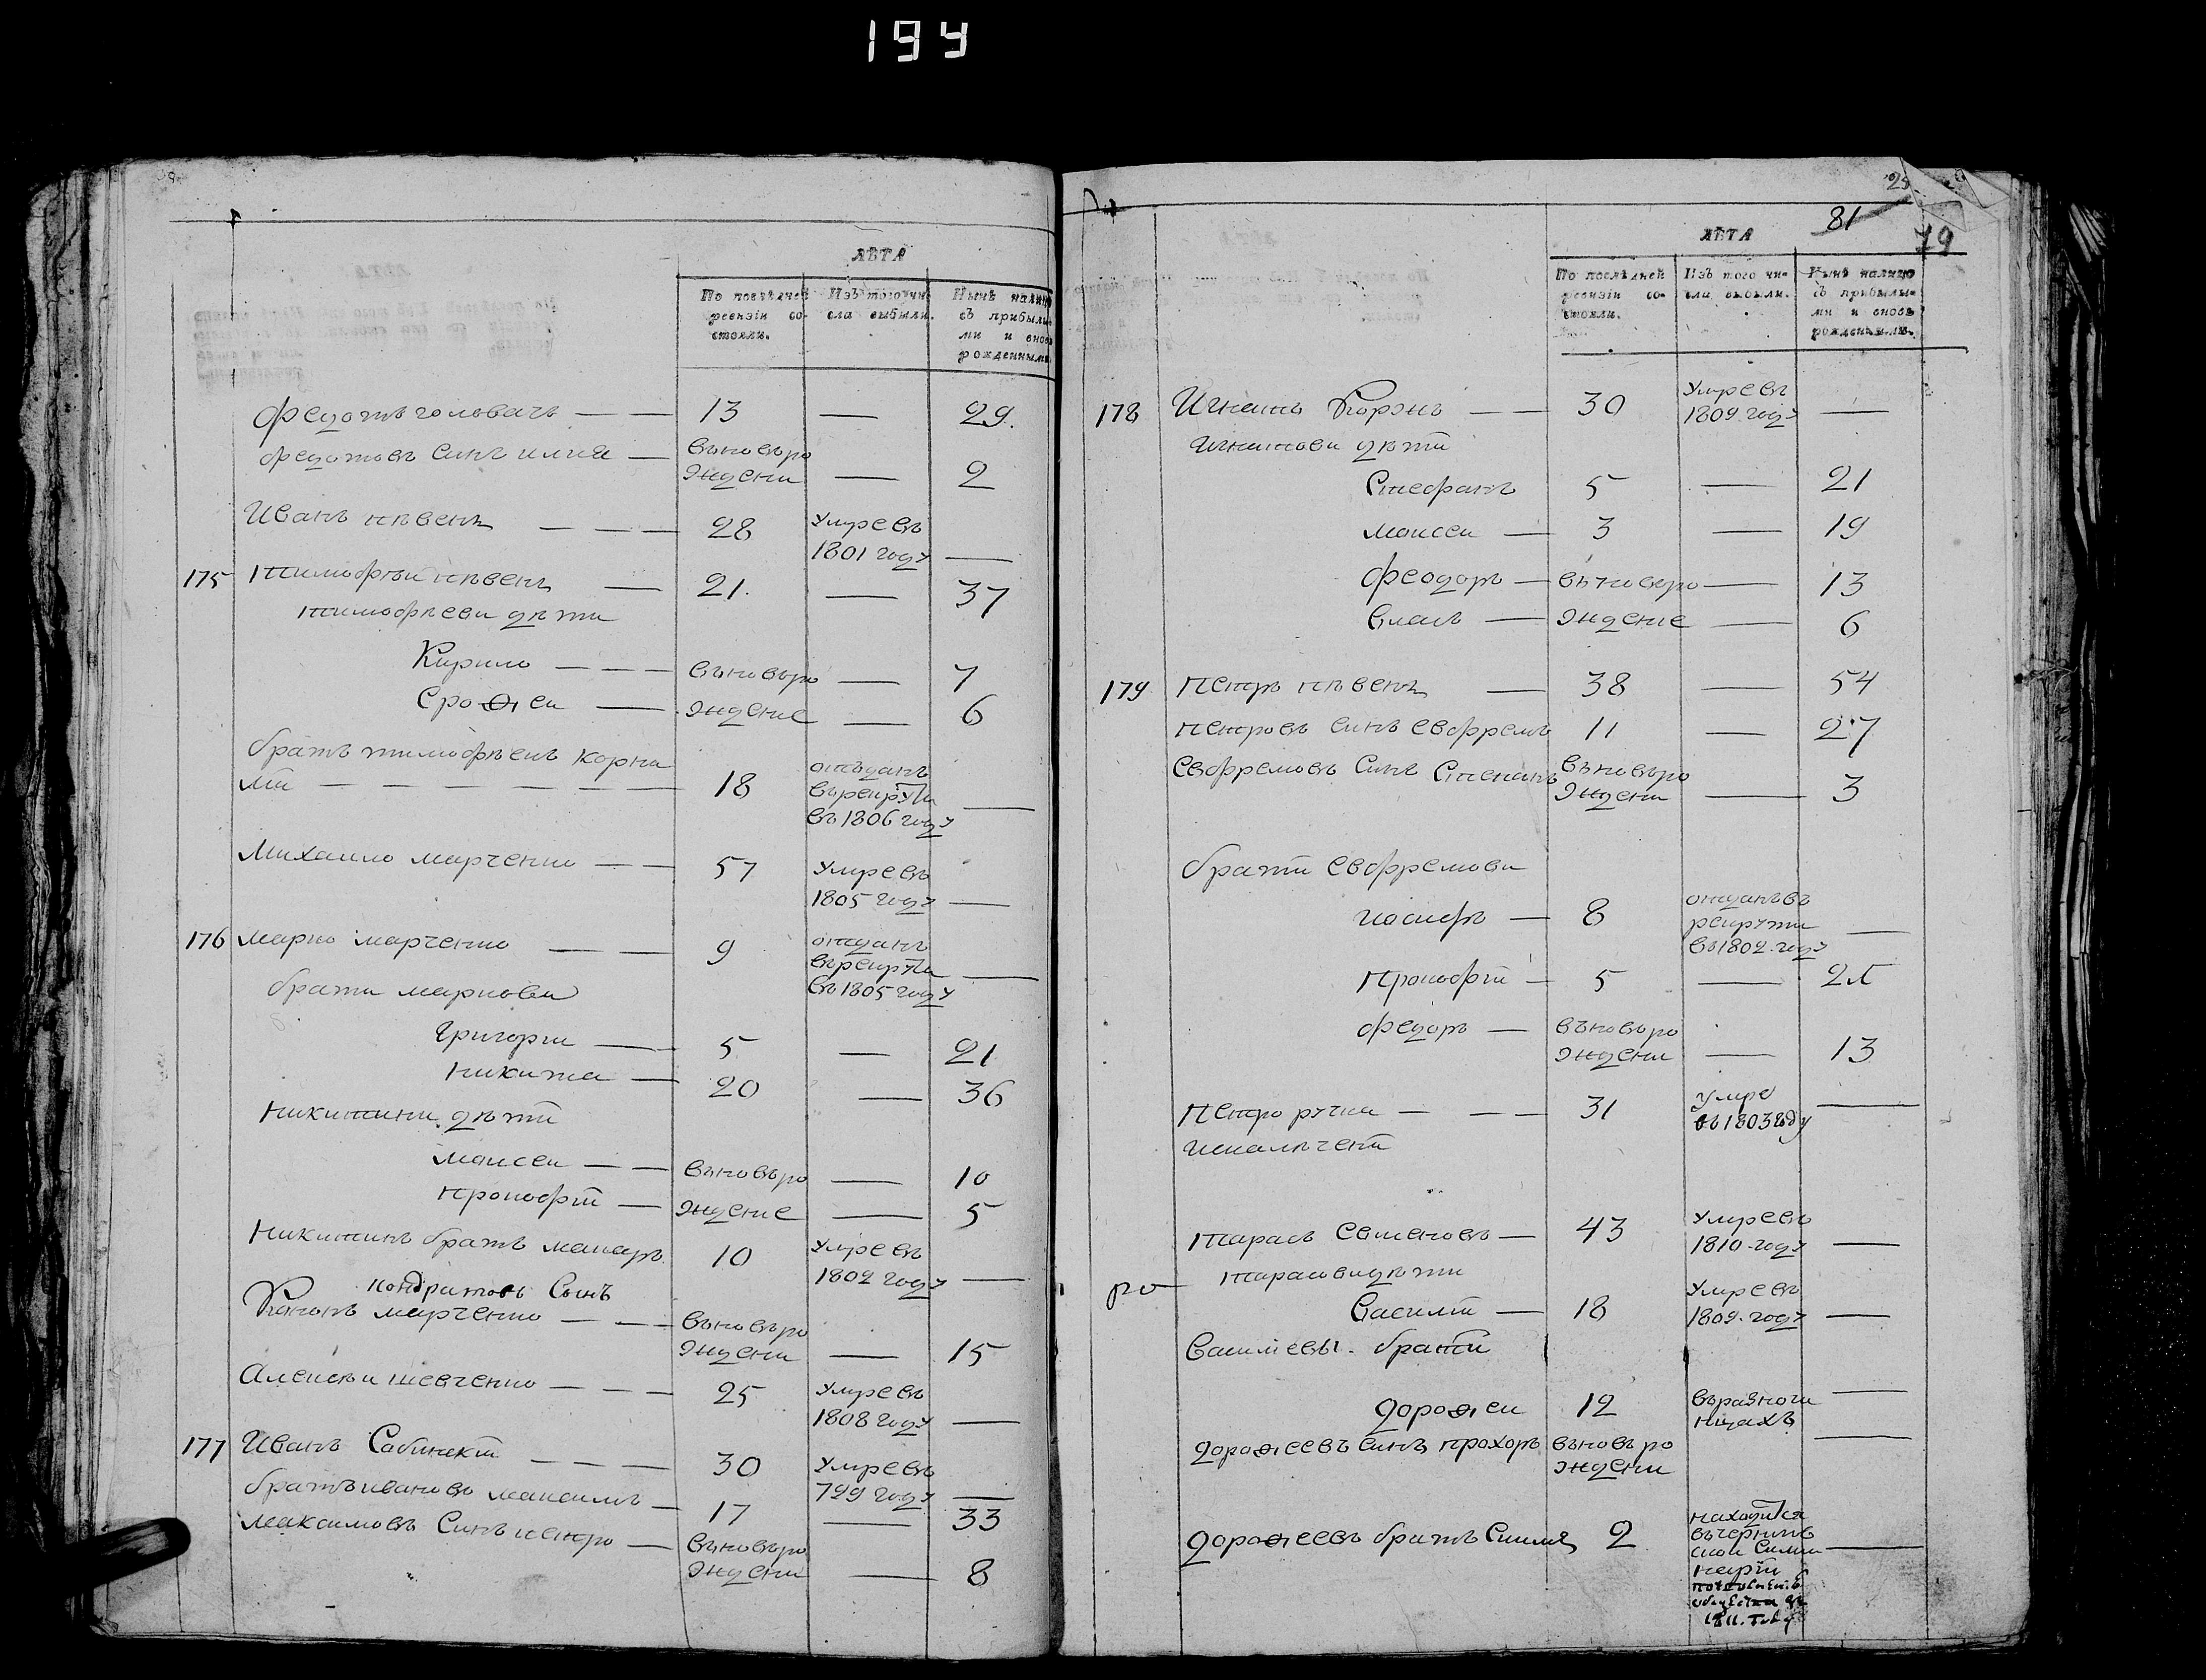 194
ЛѢТА
По послѣдней ревизіи состояли.
Изъ того числа выбыли.
Нынѣ налицо съ прибылыми и вновь рожденными.
федотъ головачъ — — 13 — 29.
федотовъ синъ илия — въновьро
ждени — 2
Иванъ пѣвень — — — 28 Умре въ
1801 году —
175 тимофѣй пѣвень — 21. — 37
тимофѣеви дѣти
Кирило — — — въновьро — 7
Ерофѳеи — ждение — 6
братъ тимофѣевъ корни
лий — — — — — — 18 отъданъ
върекрути
въ 1806 году —
Михаило марченко — — 57 Умре въ
1805 году —
176 марко марченко — — 9 отданъ
върекрути
въ 1805 году —
брати маркови
Григори — — 5 — 21
никита — 20 — 36
никитини дѣти
моисеи — — въновьро — 10
прокофій — ждение — 5
никитинъ братъ макаръ 10 Умре въ
1802 году —
кондратовъ Сынъ
Кононъ марченко — — въновьро
ждени — 15
Алексѣи шевченко — — — 25 Умре въ
1808 году —
177 Иванъ — — — 30 Умре въ
799 году —
братъ ивановъ максимъ — 17 — 33
максимовъ Синъ петро — въновьро
ждени — 8
25
81
79
ЛѢТА
По послѣдней ревизіи состояли.
Изъ того числа выбыли.
Нынѣ налицо съ прибылыми и вновь рожденными.
178 Игнатъ Корэнъ — — 30 Умре въ
1809 году —
игнатови дѣти
Стефанъ 5 — 21
моисеи — 3 — 19
феодоръ — въновьро — 13
Власъ — ждение — 6
179 петръ пѣвень — 38 — 54
петровъ синъ евфремъ 11 — 27
Евфремовъ Синъ Степанъ въновьро
ждени — 3
брати евфремови
иосифъ — 8 отданъ въ
рекрути
въ 1802 году —
прокофій — 5 — 21
федоръ — въновьро
ждени — 13
петро ручка — — — 31 умре
въ 1803 году —
искалѣчени
тарасъ Семеновъ — 43 Умре въ
1810 году —
тарасови дѣти
ро Василій — 18 Умре въ
1809 году —
Василіевы братій
дорофѳеи 12 въразночи
нцахъ —
дорофѳеевъ синъ прохоръ въновьро
ждени —
дорофѳеевъ братъ 2 находится
въчернигов
скои Семи
нарій —
1811. году